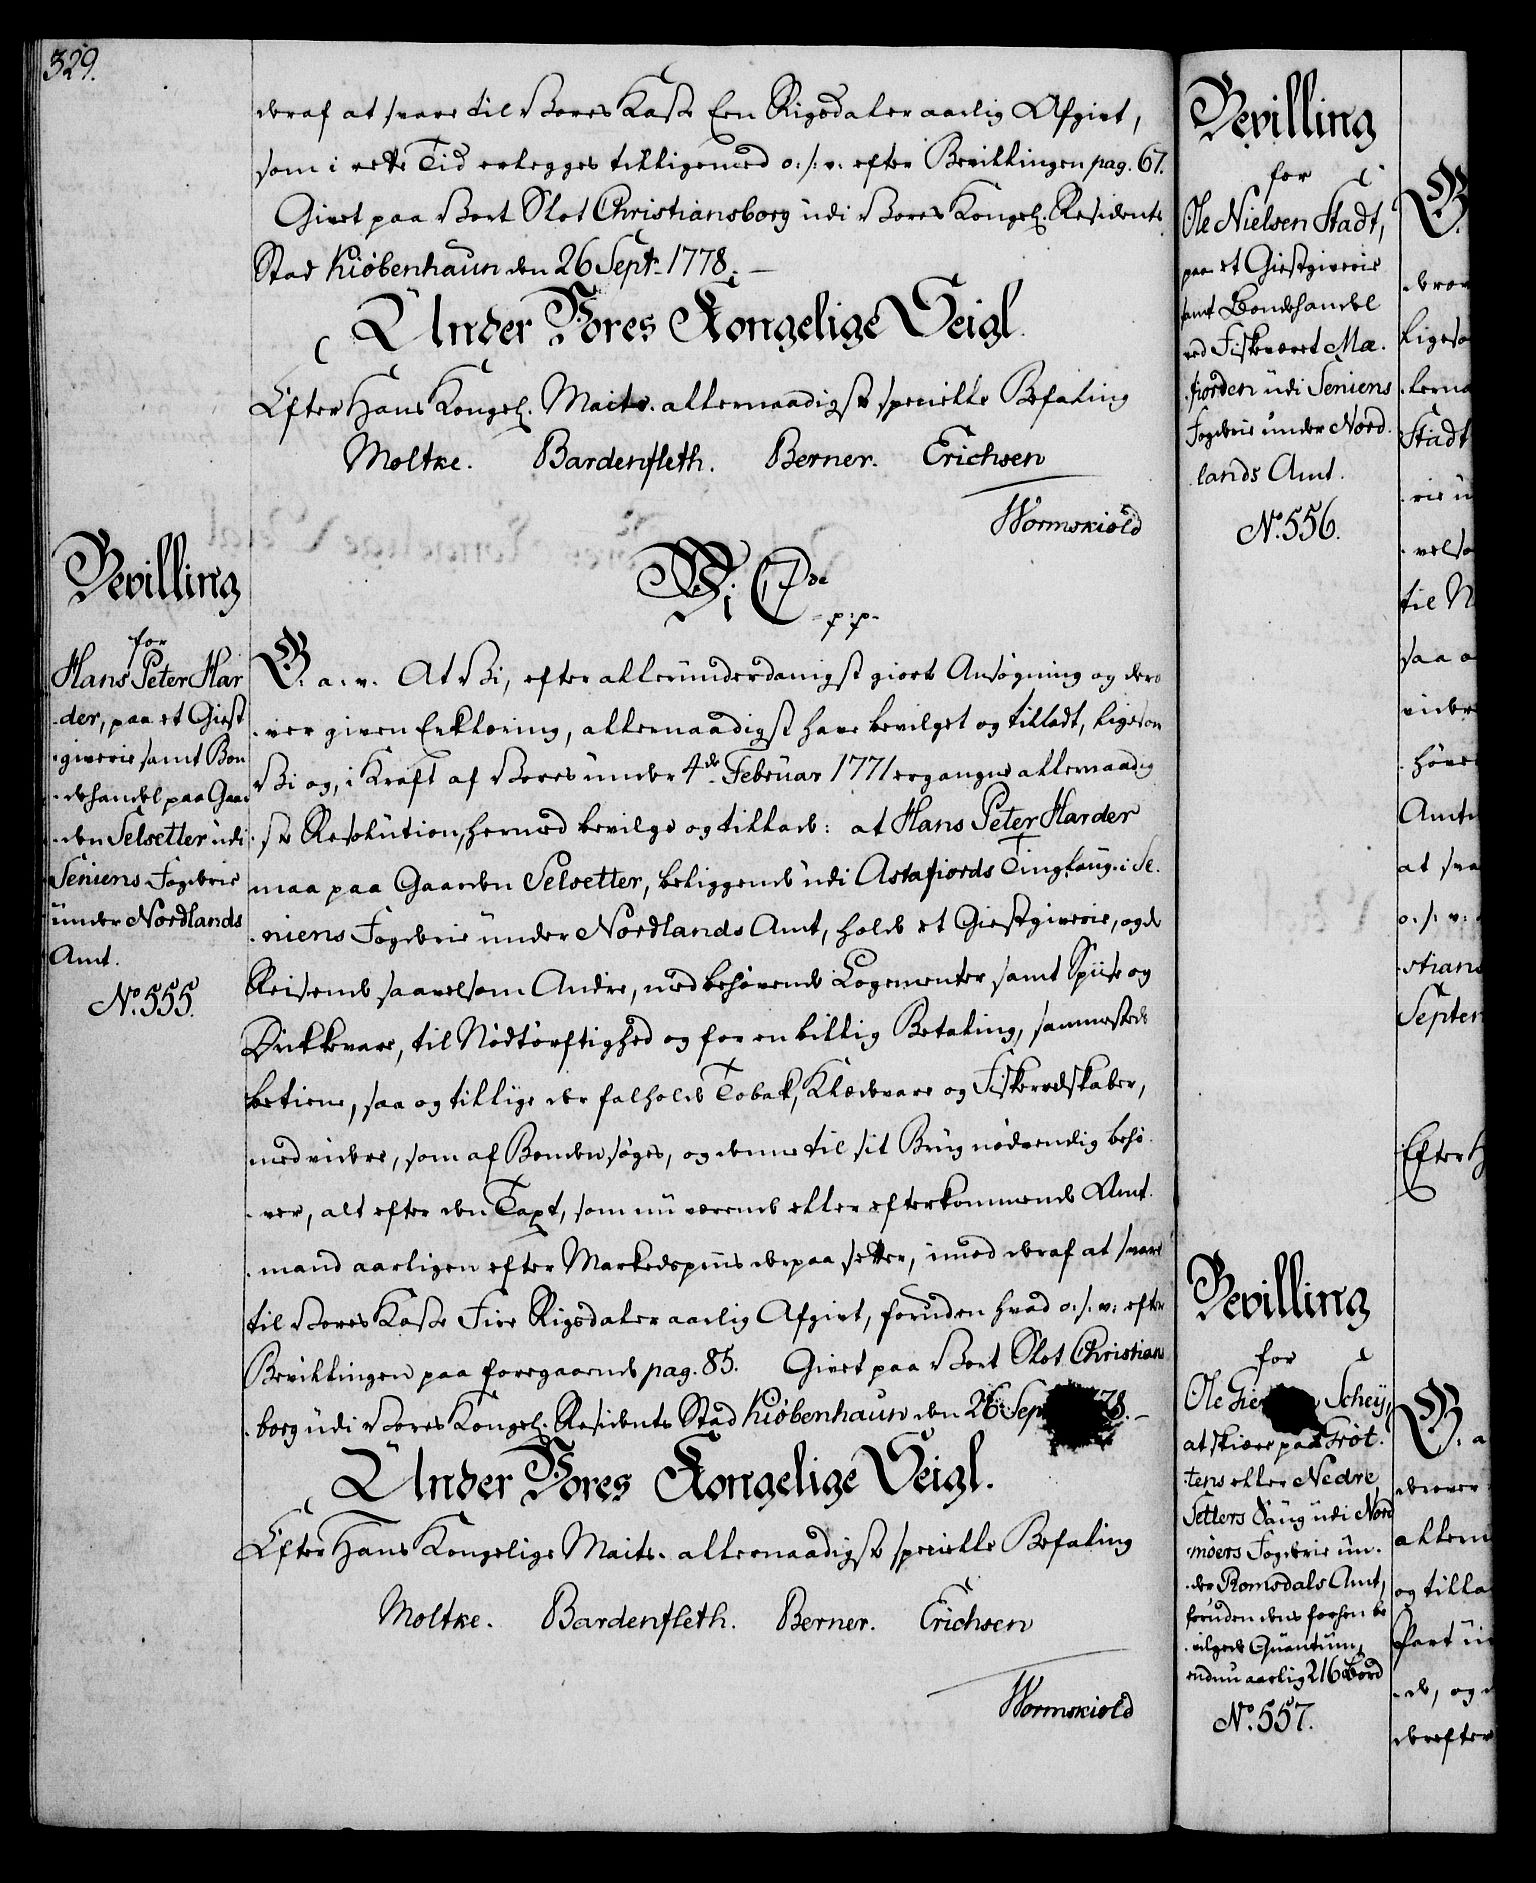 329.
deraf at svare til Vores Kaße Een Rigsdaler aarlig Afgivt,
som i rette Tid erlegges tilligemed o. s. v. efter Bevillingen pag. 67.
Givet paa Vort Slot Christiansborg udi Vores Kongel. Residents
Stad Kiøbenhaun den 26 Sept. 1778. —
Under Vores Kongelige Seigl.
Efter Hans Kongel. Maits. allernaadigste specielle Befaling
Moltke. Bardenfleth. Berner. Erichsen
Wormskiold
Bevilling
for
Hans Peter Har
-der, paa et Giest
-giverie samt Bon
-dehandel paa Gaar
-den Selsetter udi
Seniens Fogderie
under Nordlands
Amt.
No. 555.
Vi C 7de
p. p.
G. a. v. At Vi, efter allerunderdanigst giort Ansøgning og dero
-ver given Erklæring, allernaadigst have bevilget og tilladt, ligesom
Vi og, i Kraft af Vores under 4de Februar 1771 ergangne allernaadig
-ste Resolution, hermed bevilge og tillade: at Hans Peter Harder
maa paa Gaarden Selsetter, beliggende udi Astafiords Tinglaug i Se-
-niens Fogderie under Nordlands Amt, holde et Giestgiverie, og de
Reisende saavelsom Andre, med behøvende Logementer samt Spiise og
Drikkevare, til Nødtørftighed og for en billig Betaling, sammesteds
betiene, saa og tillige der falholde Tobak, Klædevare og Fiskeredskaber,
med videre, som af Bonden søges, og denne til sit Brug nødvendig behø-
-ver, alt efter den Taxt, som nu værende eller efterkommende Amt-
-mand aarligen efter Markedspriis derpaa setter, imod deraf at svare
til Vores Kaße Fire Rigsdaler aarlig Afgivt, foruden hvad o. s. v. efter
Bevillingen paa foregaaende pag. 85. Givet paa Vort Slot Christian
-borg udi Vores Kongel. Residents Stad Kiøbenhaun den 26 Sep 78. —
Under Vores Kongelige Seigl.
Efter Hans Kongelige Maits. allernaadigste specielle Befaling
Moltke. Bardenfleth. Berner. Erichsen
Wormskiold
Bevilling
for
Ole Nielsen Stadt,
paa et Giestgiverie
samt Bondehandel
ved Fiskeværet Mæ-
-fiorden udi Seniens
Fogderie under Nord-
lands Amt.
No. 556.
Bevilling
for
Ole Schey,
at skiære paa Frøt-
tens eller Nedre
Setters Saug udi Nord
møers Fogderie un-
-der Romsdals Amt,
foruden dens forhen be
-vilgede Quantum,
endnu aarlig 216 Bord
No. 557.
G.
derov
ligeso
-lerna
Stadt
-rie u
-velso
til N
saa o
vider
høve
Amtm
at sva
o. s. v.
-stians
Septem
Efter H
G. a
derover
allern
og tilla
Part ud
-de, og
derefter